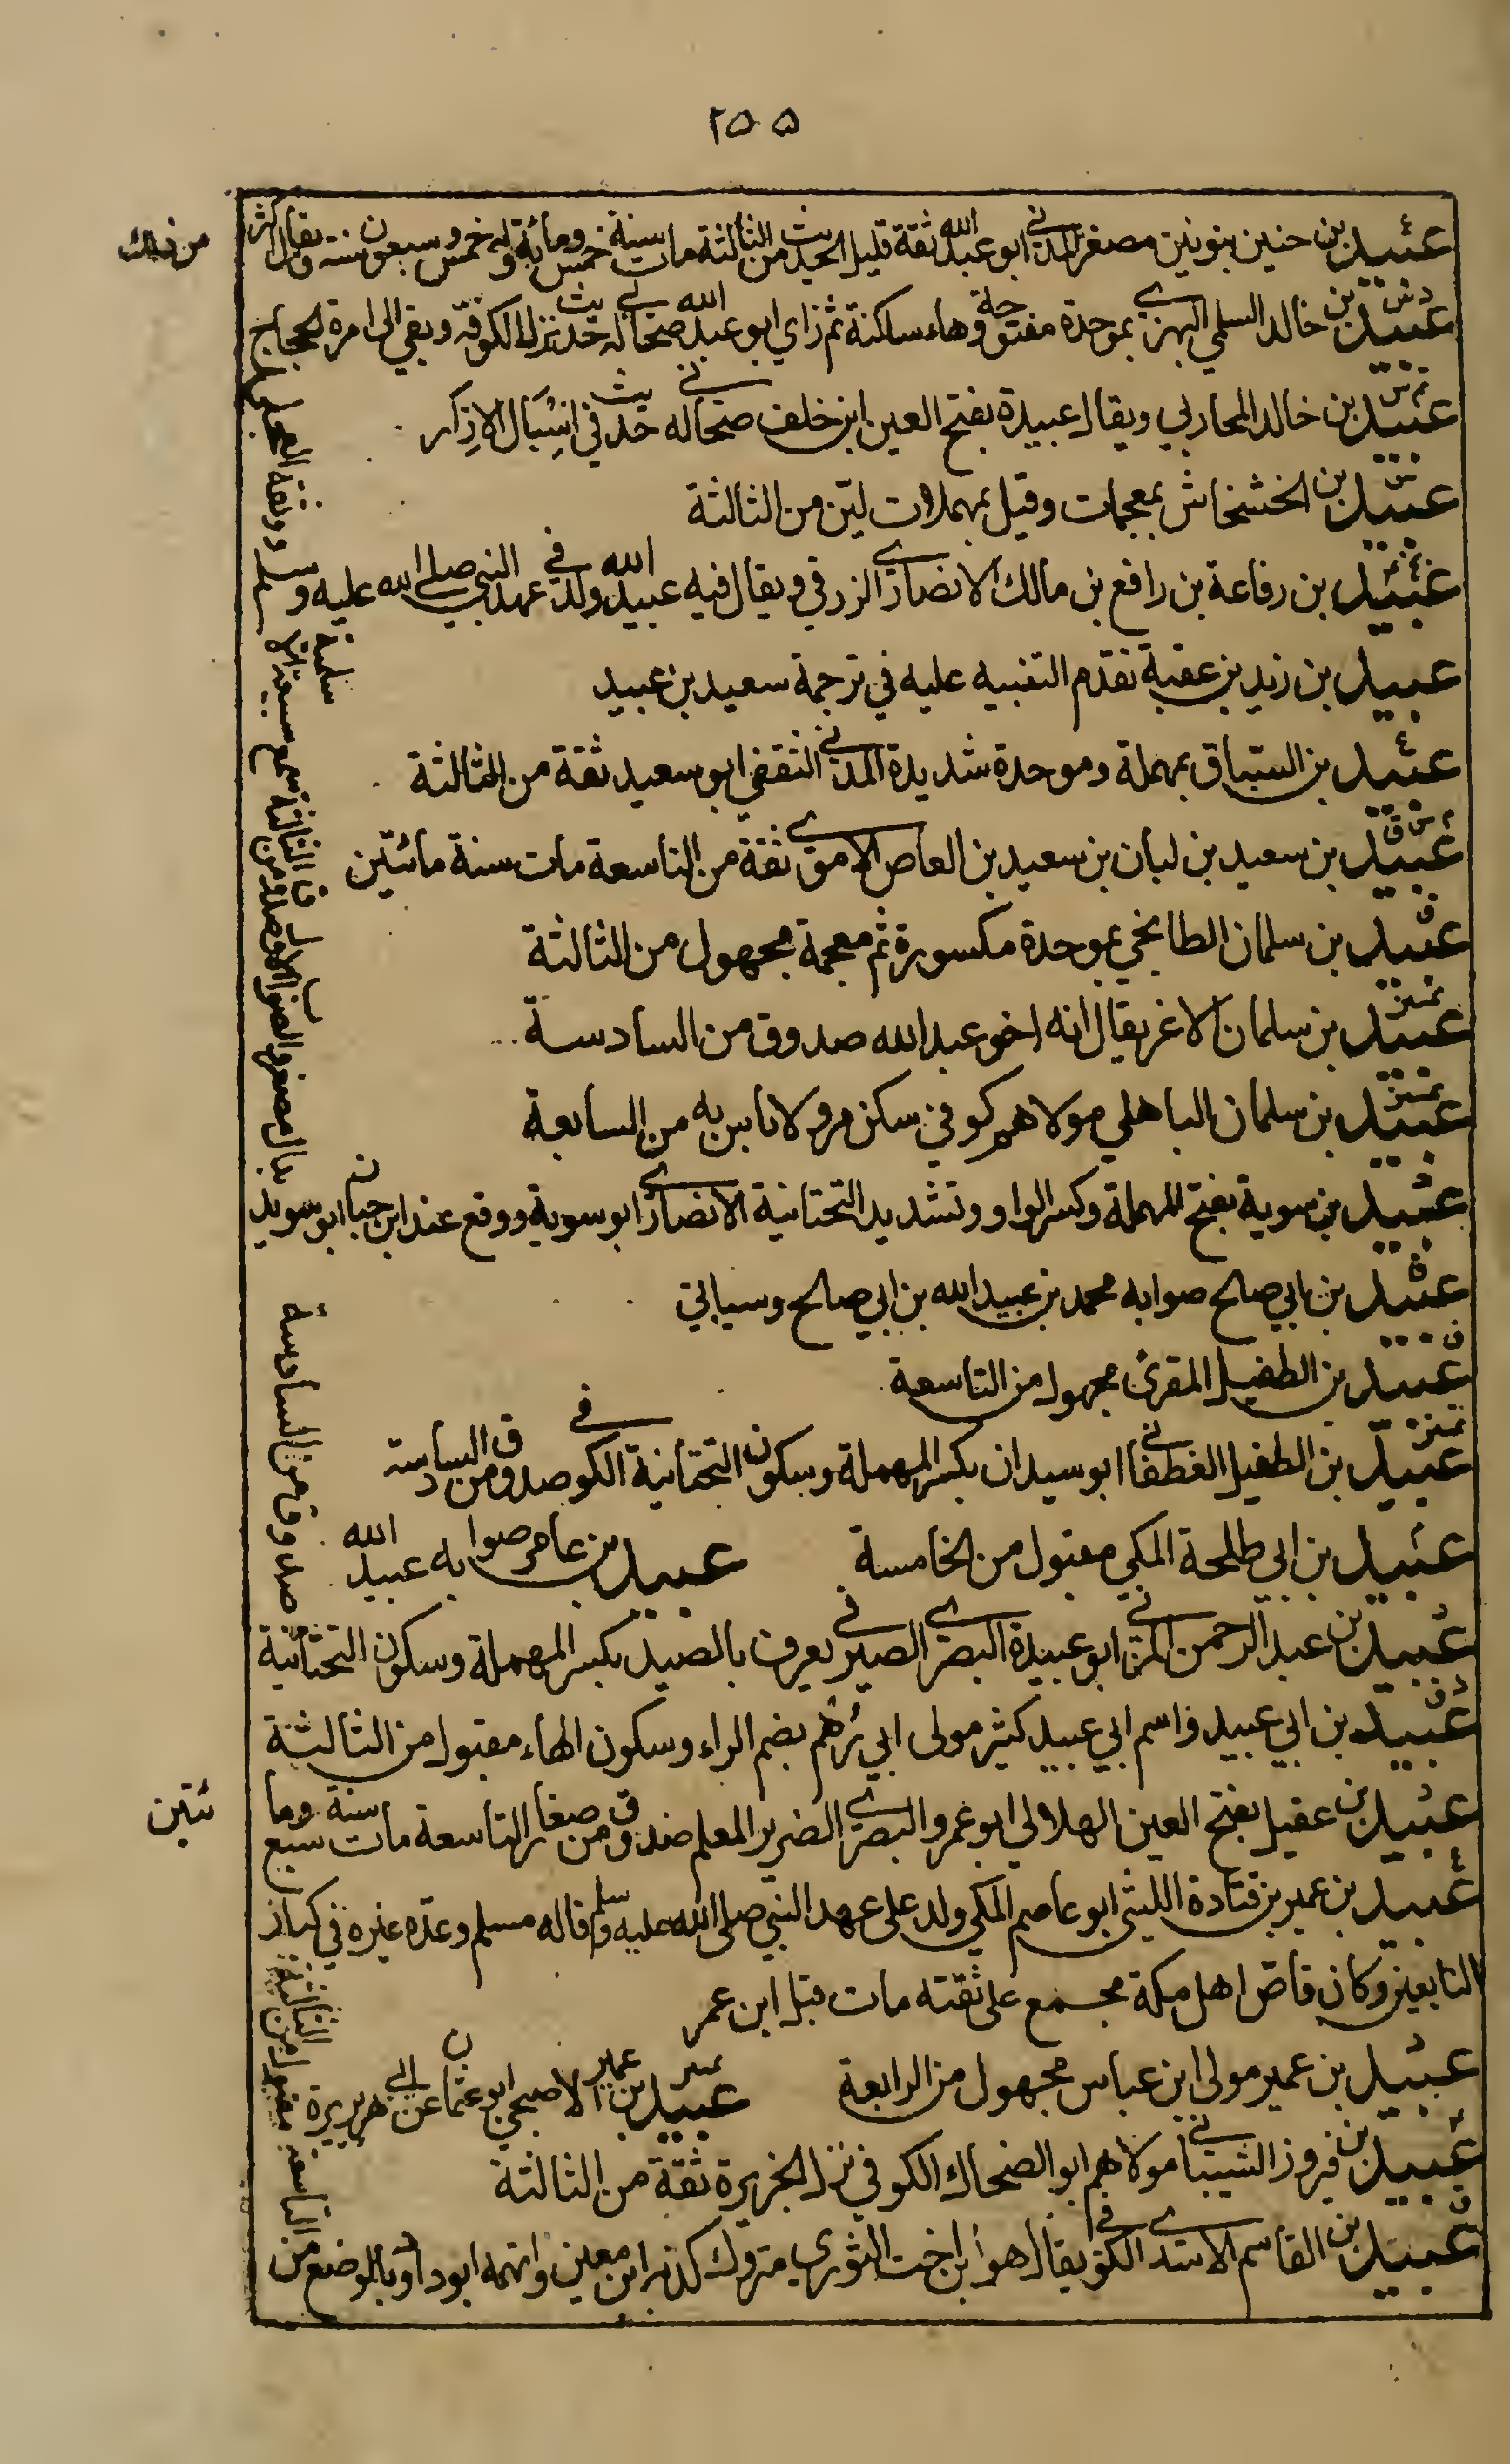 ٢٥٥
عبيد بن حنين بنونين مصغر المدني ابو عبد الله ثقة قليل الحديث من الثالثة مات سنة خمس ومائة وله خمس وسبعون سنة ويقال اكثر
من ذلك
عبيد بن خالد السلمي البهزي بموحدة مفتوحة وهاء ساكنة ثم زاي ابو عبد الله صحابي له حديث نزل الكوفة وبقي الى امرة الحجاج
عبيد بن خالد المحاربي ويقال عبيدة بفتح العين ابن خلف صحابي له حديث في اسبال الازار
عبيد بن الخشخاش بمعجمات وقيل بمهملات ليّن من الثالثة
عبيد بن رفاعة بن رافع بن مالك الانصاري الزرقي ويقال فيه عبيد الله ولد في عهد النبي صلى الله عليه وسلم ووثقه العجلي
عبيد بن زيد بن عقبة تقدم التنبيه عليه في ترجمة سعيد بن عبيد
عبيد بن السباق بمهملة وموحدة شديدة المدني الثقفي ابو سعيد ثقة من الثالثة
عبيد بن سعيد بن ابان بن سعيد بن العاص الاموي ثقة من التاسعة مات سنة مائتين
عبيد بن سلمان الطابخي بموحدة مكسورة ثم معجمة مجهول من الثالثة
عبيد بن سلمان الاغر يقال انه اخو عبد الله صدوق من السادسة
عبيد بن سلمان الباهلي مولاهم كوفي سكن مرو لا باس به من السابعة
عبيد بن سوية بفتح المهملة وكسر الواو وتشديد التحتانية الانصاري ابو سوية ووقع عند ابن حبان ابو سويد
عبيد بن ابي صالح صوابه محمد بن عبيد الله بن ابي صالح وسياتي
عبيد بن الطفيل المقرئ مجهول من التاسعة
عبيد بن الطفيل الغطفاني ابو سيدان بكسر المهملة وسكون التحتانية الكوفي صدوق من السادسة
عبيد بن ابي طلحة المكي مقبول من الخامسة عبيد بن عامر صوابه عبيد الله
عبيد بن عبد الرحمن المزني ابو عبيدة البصري الصيرفي يعرف بالصيد بكسر المهملة وسكون التحتانية
صدوق من السادسة
عبيد بن ابي عبيد واسم ابي عبيد كثير مولى ابي رُهْم بضم الراء وسكون الهاء مقبول من الثالثة
عبيد بن عقيل بفتح العين الهلالي ابو عمرو البصري الضرير المعلم صدوق من صغار التاسعة مات سنة سبع وما
ئتين
عبيد بن عمير بن قتادة الليثي ابو عاصم المكي ولد على عهد النبي صلى الله عليه وسلم قاله مسلم وعدّه غيره في كبار
التابعين وكان قاصّ اهل مكة مجمع على ثقته مات قبل ابن عمر
عبيد بن عمير مولى ابن عباس مجهول من الرابعة عبيد بن عمير الاصبحي ابو عثمان عن ابي هريرة
مقبول من الثالثة
عبيد بن فيروز الشيباني مولاهم ابو الضحاك الكوفي نزل الجزيرة ثقة من الثالثة
عبيد بن القاسم الاسدي الكوفي يقال هو ابن اخت الثوري متروك كذبه ابن معين واتهمه ابو داود بالوضع من
التاسعة